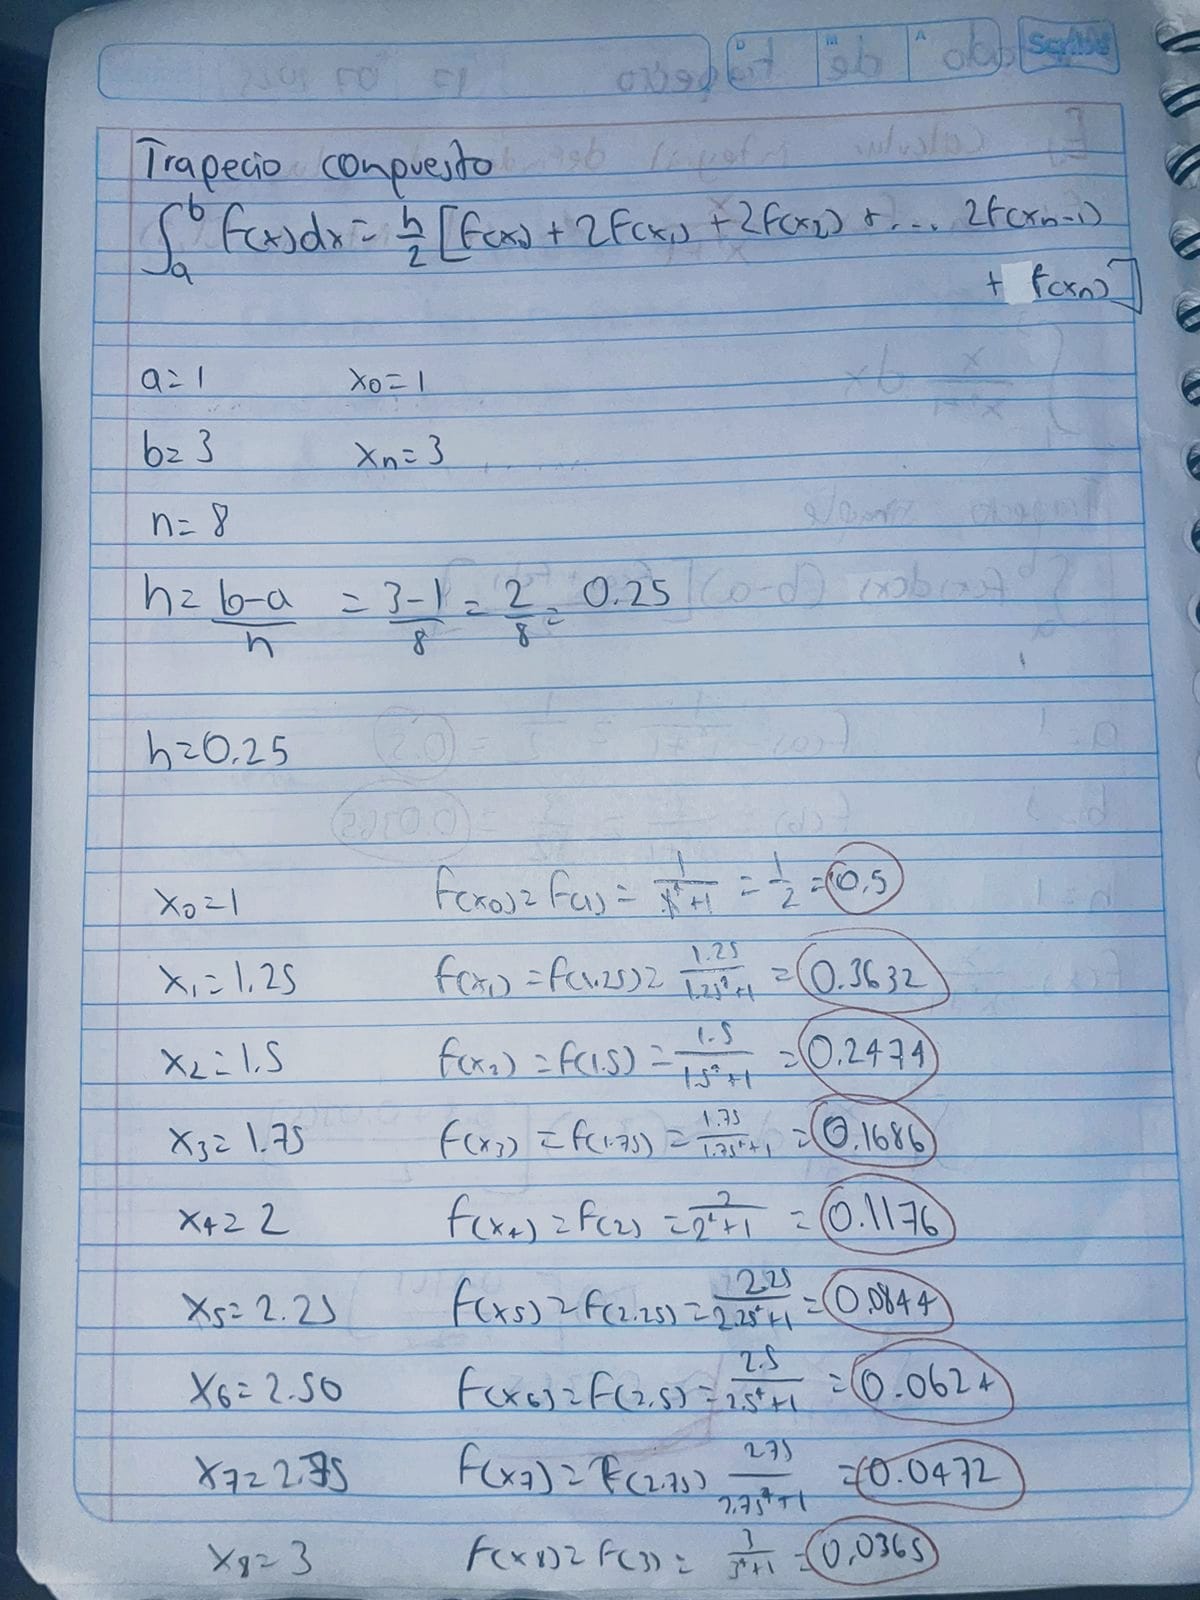 D M A Scribe
Trapecio conpuesto
∫ₐᵇ f(x)dx = h/2 [f(x₀) + 2f(x₁) + 2f(x₂) + ... 2f(xn-1)
+ f(xn)]
a=1 x₀=1
b=3 xn=3
n=8
h= b-a/n = 3-1/8 = 2/8 = 0.25
h=0.25
x₀=1 f(x₀)=f(1)= 1/1⁴+1 = 1/2 = 0.5
x₁=1.25 f(x₁)=f(1.25)= 1.25/1.25⁴+1 = 0.3632
x₂=1.5 f(x₂)=f(1.5)= 1.5/1.5⁴+1 = 0.2474
x₃=1.75 f(x₃)=f(1.75)= 1.75/1.75⁴+1 = 0.1686
x₄=2 f(x₄)=f(2)= 2/2⁴+1 = 0.1176
x₅=2.25 f(x₅)=f(2.25)= 2.25/2.25⁴+1 = 0.0844
x₆=2.50 f(x₆)=f(2.5)= 2.5/2.5⁴+1 = 0.0624
x₇=2.75 f(x₇)=f(2.75) 2.75/2.75⁴+1 = 0.0472
x₈=3 f(x₈)=f(3)= 3/3⁴+1 = 0.0365